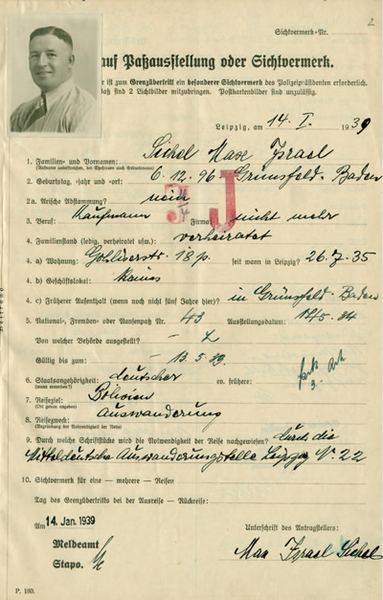 Sichtvermerk-Nr.
2
auf Paßausstellung oder Sichtvermerk.
ist zum Grenzübertritt ein besonderer Sichtvermerk des Polizeipräsidenten erforderlich.
sind 2 Lichtbilder mitzubringen. Postkartenbilder sind unzulässig.
Leipzig, am 14. I. 1939
1. Familien- und Vornamen: Sichel Max Israel
2. Geburtstag, -jahr und -ort: 6. 12. 96 Grünsfeld-Baden
2a. Arische Abstammung? nein
J
3. Beruf: Kaufmann Firma nicht mehr
4. Familienstand (ledig, verheiratet usw.): verheiratet
4. a) Wohnung: Gohliserstr. 18p. seit wann in Leipzig? 26.7.35
4. b) Geschäftslokal: keines
4. c) Früherer Aufenthalt (wenn noch nicht fünf Jahre hier)? in Grünsfeld-Baden
5. National-, Fremden- oder Armenpaß Nr. 43 Ausstellungsdatum:
Von welcher Behörde ausgestellt?
Gültig bis zum
6. Staatsangehörigkeit: deutscher ev. frühere:
7. Reiseziel: Bolivien
(Ort genau angeben)
8. Reisezweck: Auswanderung
(Begründung der Notwendigkeit der Reise)
9. Durch welche Schriftstücke wird die Notwendigkeit der Reise nachgewiesen? durch die
Mitteldeutsche Auswanderungsstelle Leipzig Nr. 22
10. Sichtvermerk für eine — mehrere — Reisen
Tag des Grenzübertritts bei der Ausreise — Rückreise:
Am 14. Jan. 1939
Unterschrift des Antragstellers:
Meldeamt
Stapo.
Max Israel Sichel
P. 180.